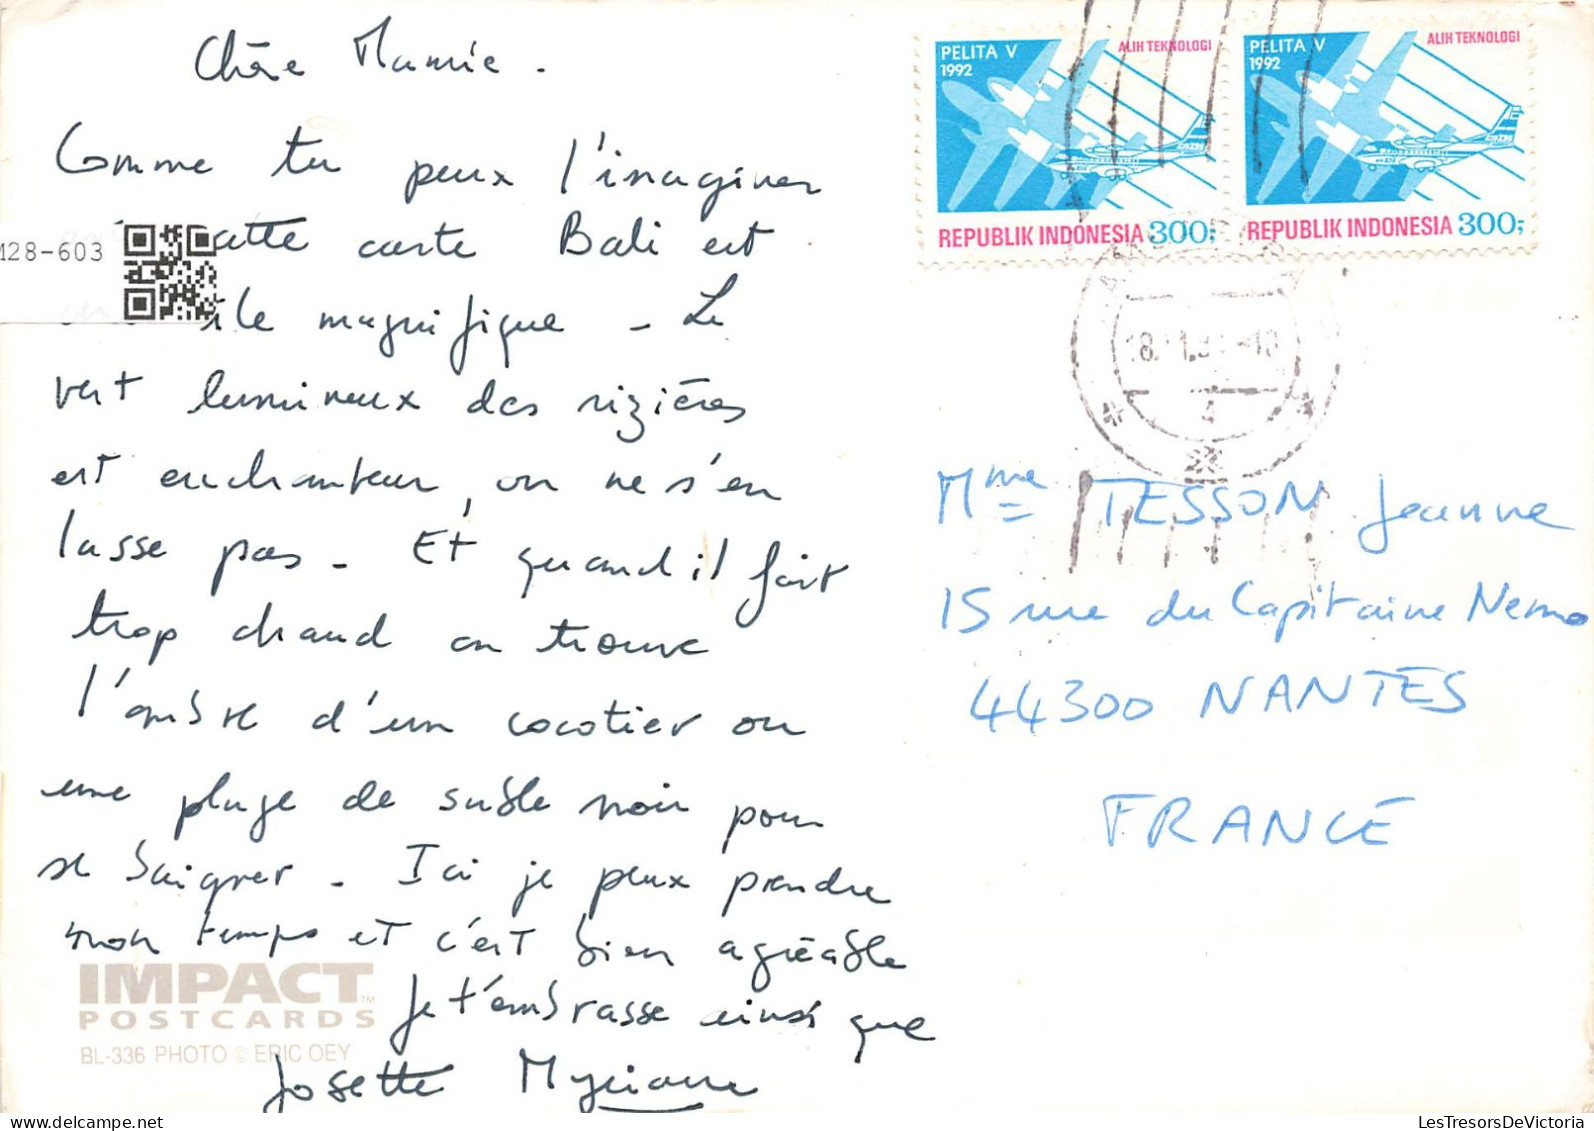 Chère Mamie.
Comme tu peux l'imaginer
cette carte Bali est
île magnifique - Le
vert lumineux des rizières
est enchanteur, on ne s'en
lasse pas - Et quand il fait
trop chaud on trouve
l'ombre d'un cocotier ou
une plage de sable noir pour
se baigner - Ici je peux prendre
mon temps et c'est bien agréable
Je t'embrasse ainsi que
Josette Myriam
M28-603
IMPACT™
POSTCARDS
BL-336 PHOTO © ERIC OEY
PELITA V
1992
ALIH TEKNOLOGI
REPUBLIK INDONESIA 300;
PELITA V
1992
ALIH TEKNOLOGI
REPUBLIK INDONESIA 300;
4
Mme TESSON Jeanne
15 rue du Capitaine Nemo
44300 NANTES
FRANCE
LesTresorsDeVictoria